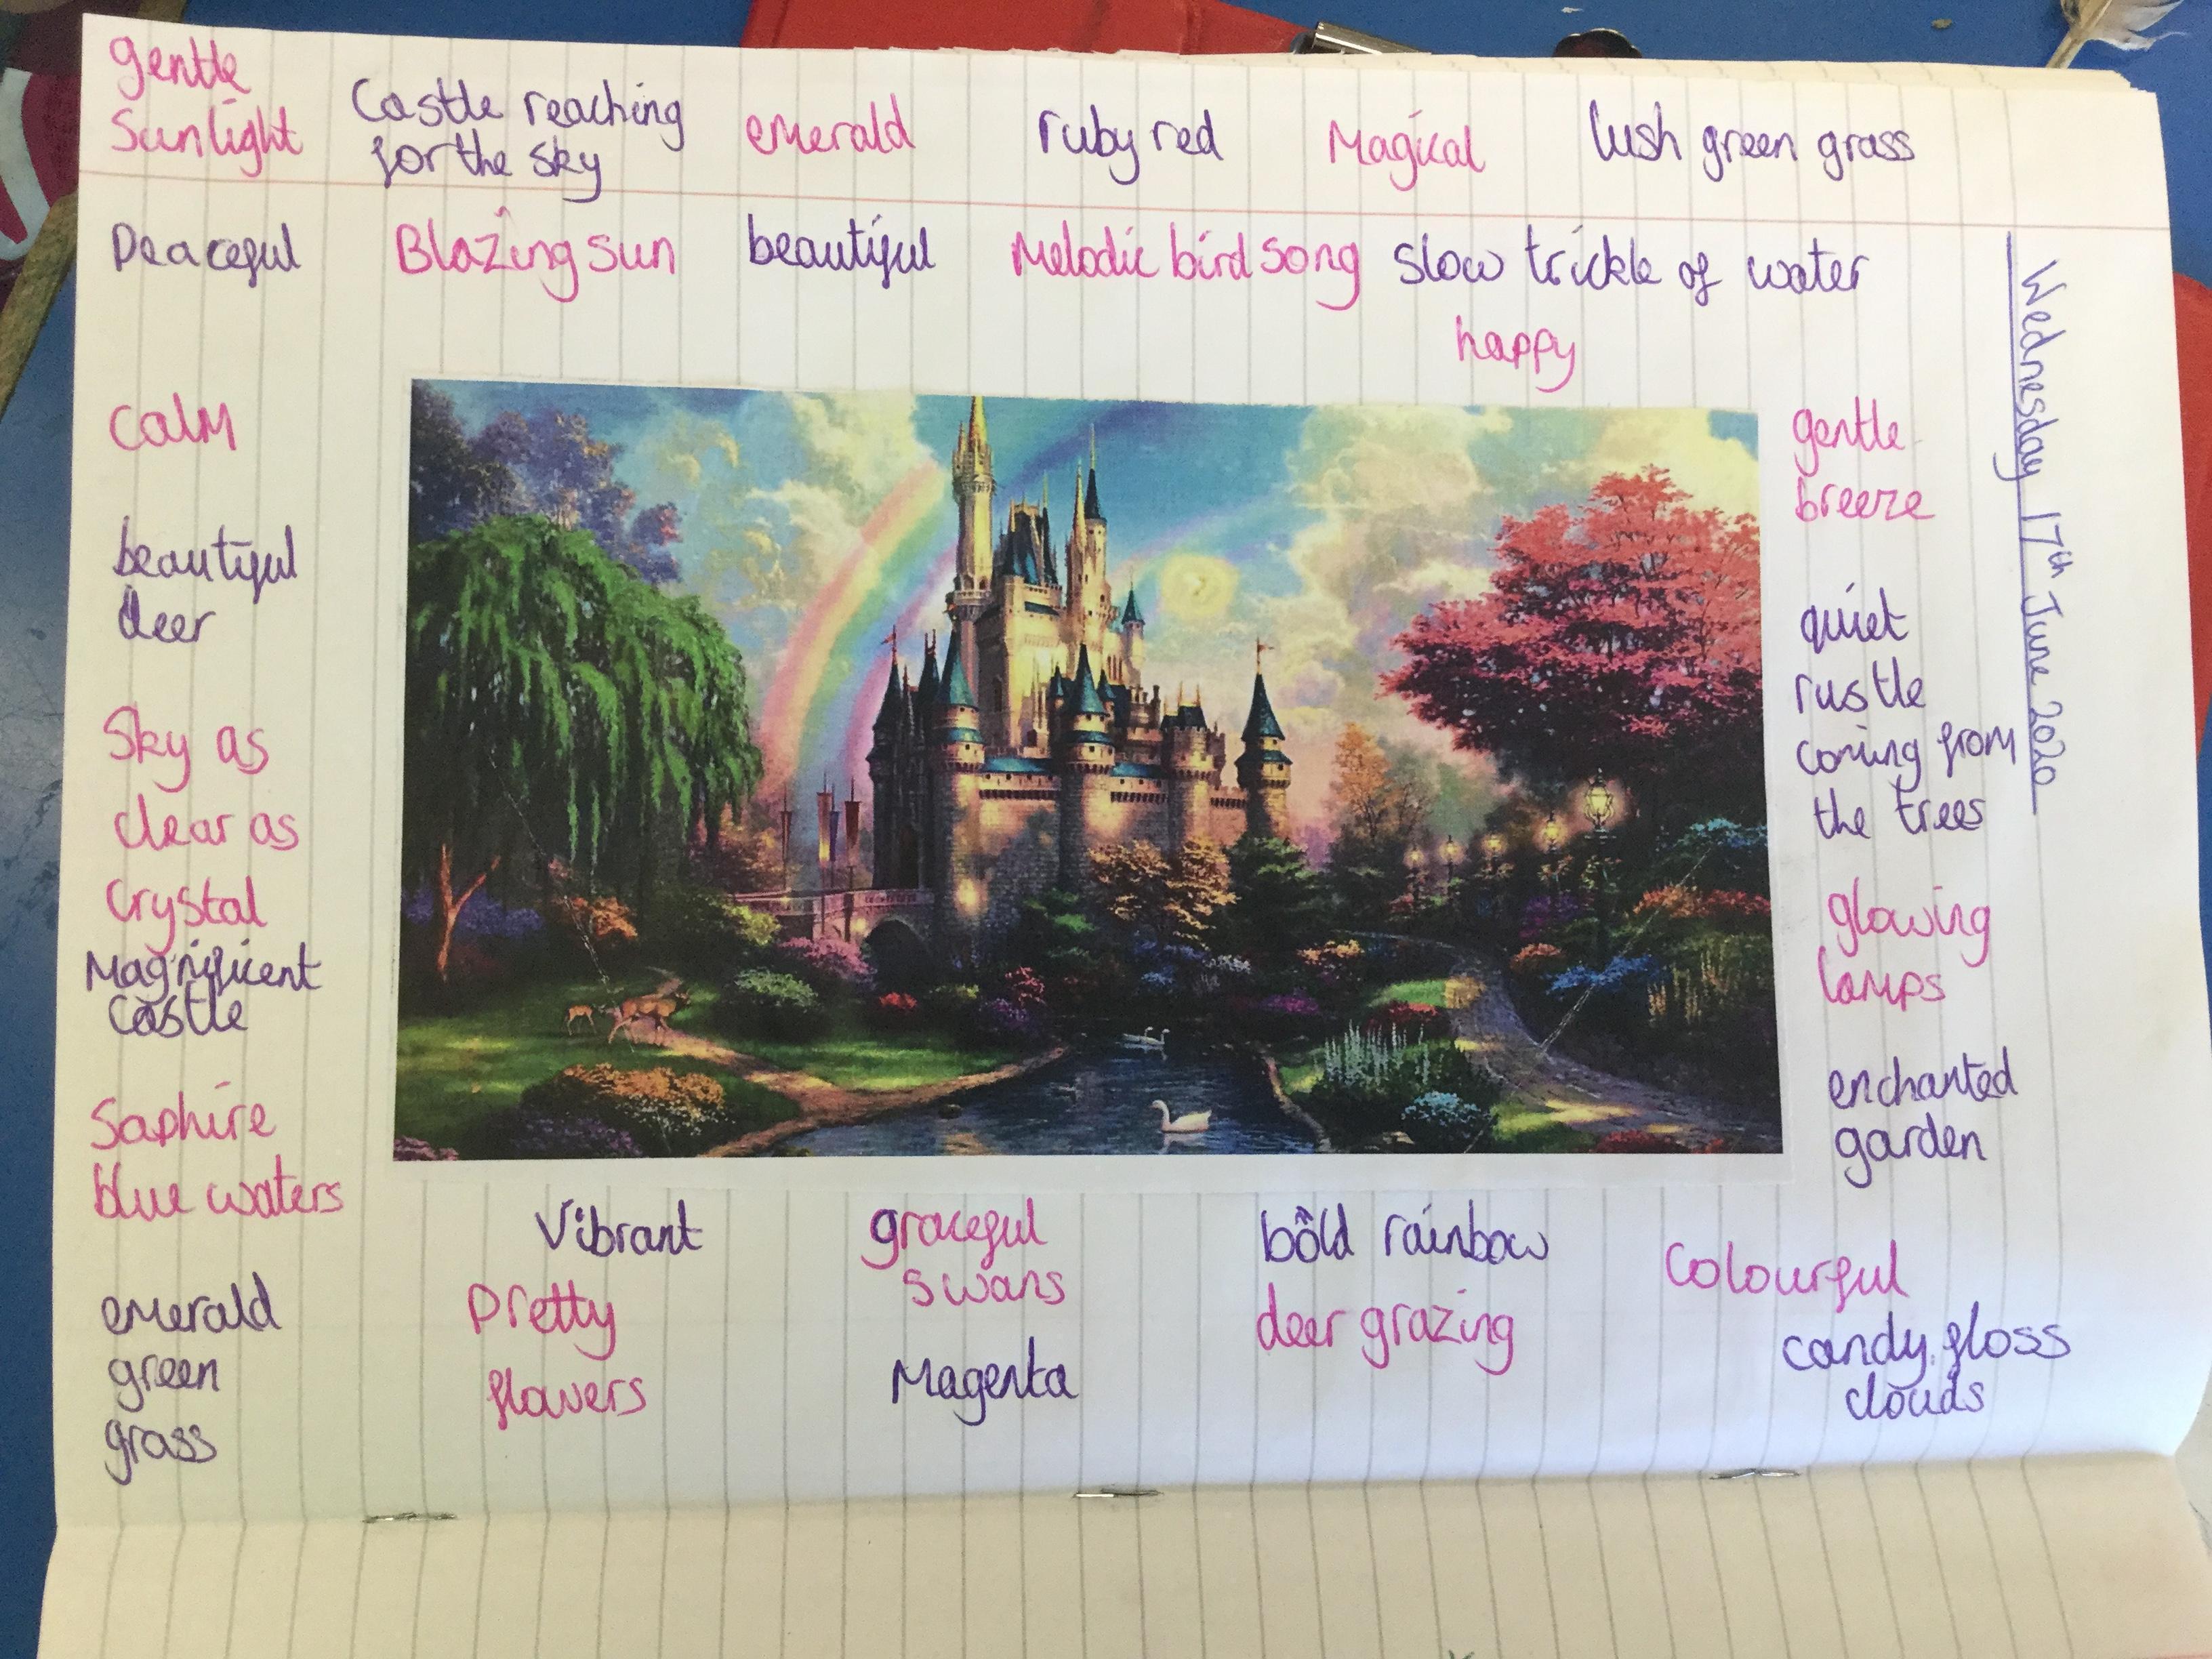 gentle
Sunlight
Castle reaching
for the sky
emerald
ruby red
Magical
lush green grass
Peaceful
Blazing sun
beautiful
Melodic bird song
slow trickle of water
happy
Wednesday 17th June 2020
calm
beautiful
deer
Sky as
clear as
crystal
Magnificent
castle
Saphire
blue waters
emerald
green
grass
gentle
breeze
quiet
rustle
coming from
the trees
glowing
lamps
enchanted
garden
Vibrant
Pretty
flowers
graceful
swans
Magenta
bold rainbow
deer grazing
Colourful
candy floss
clouds